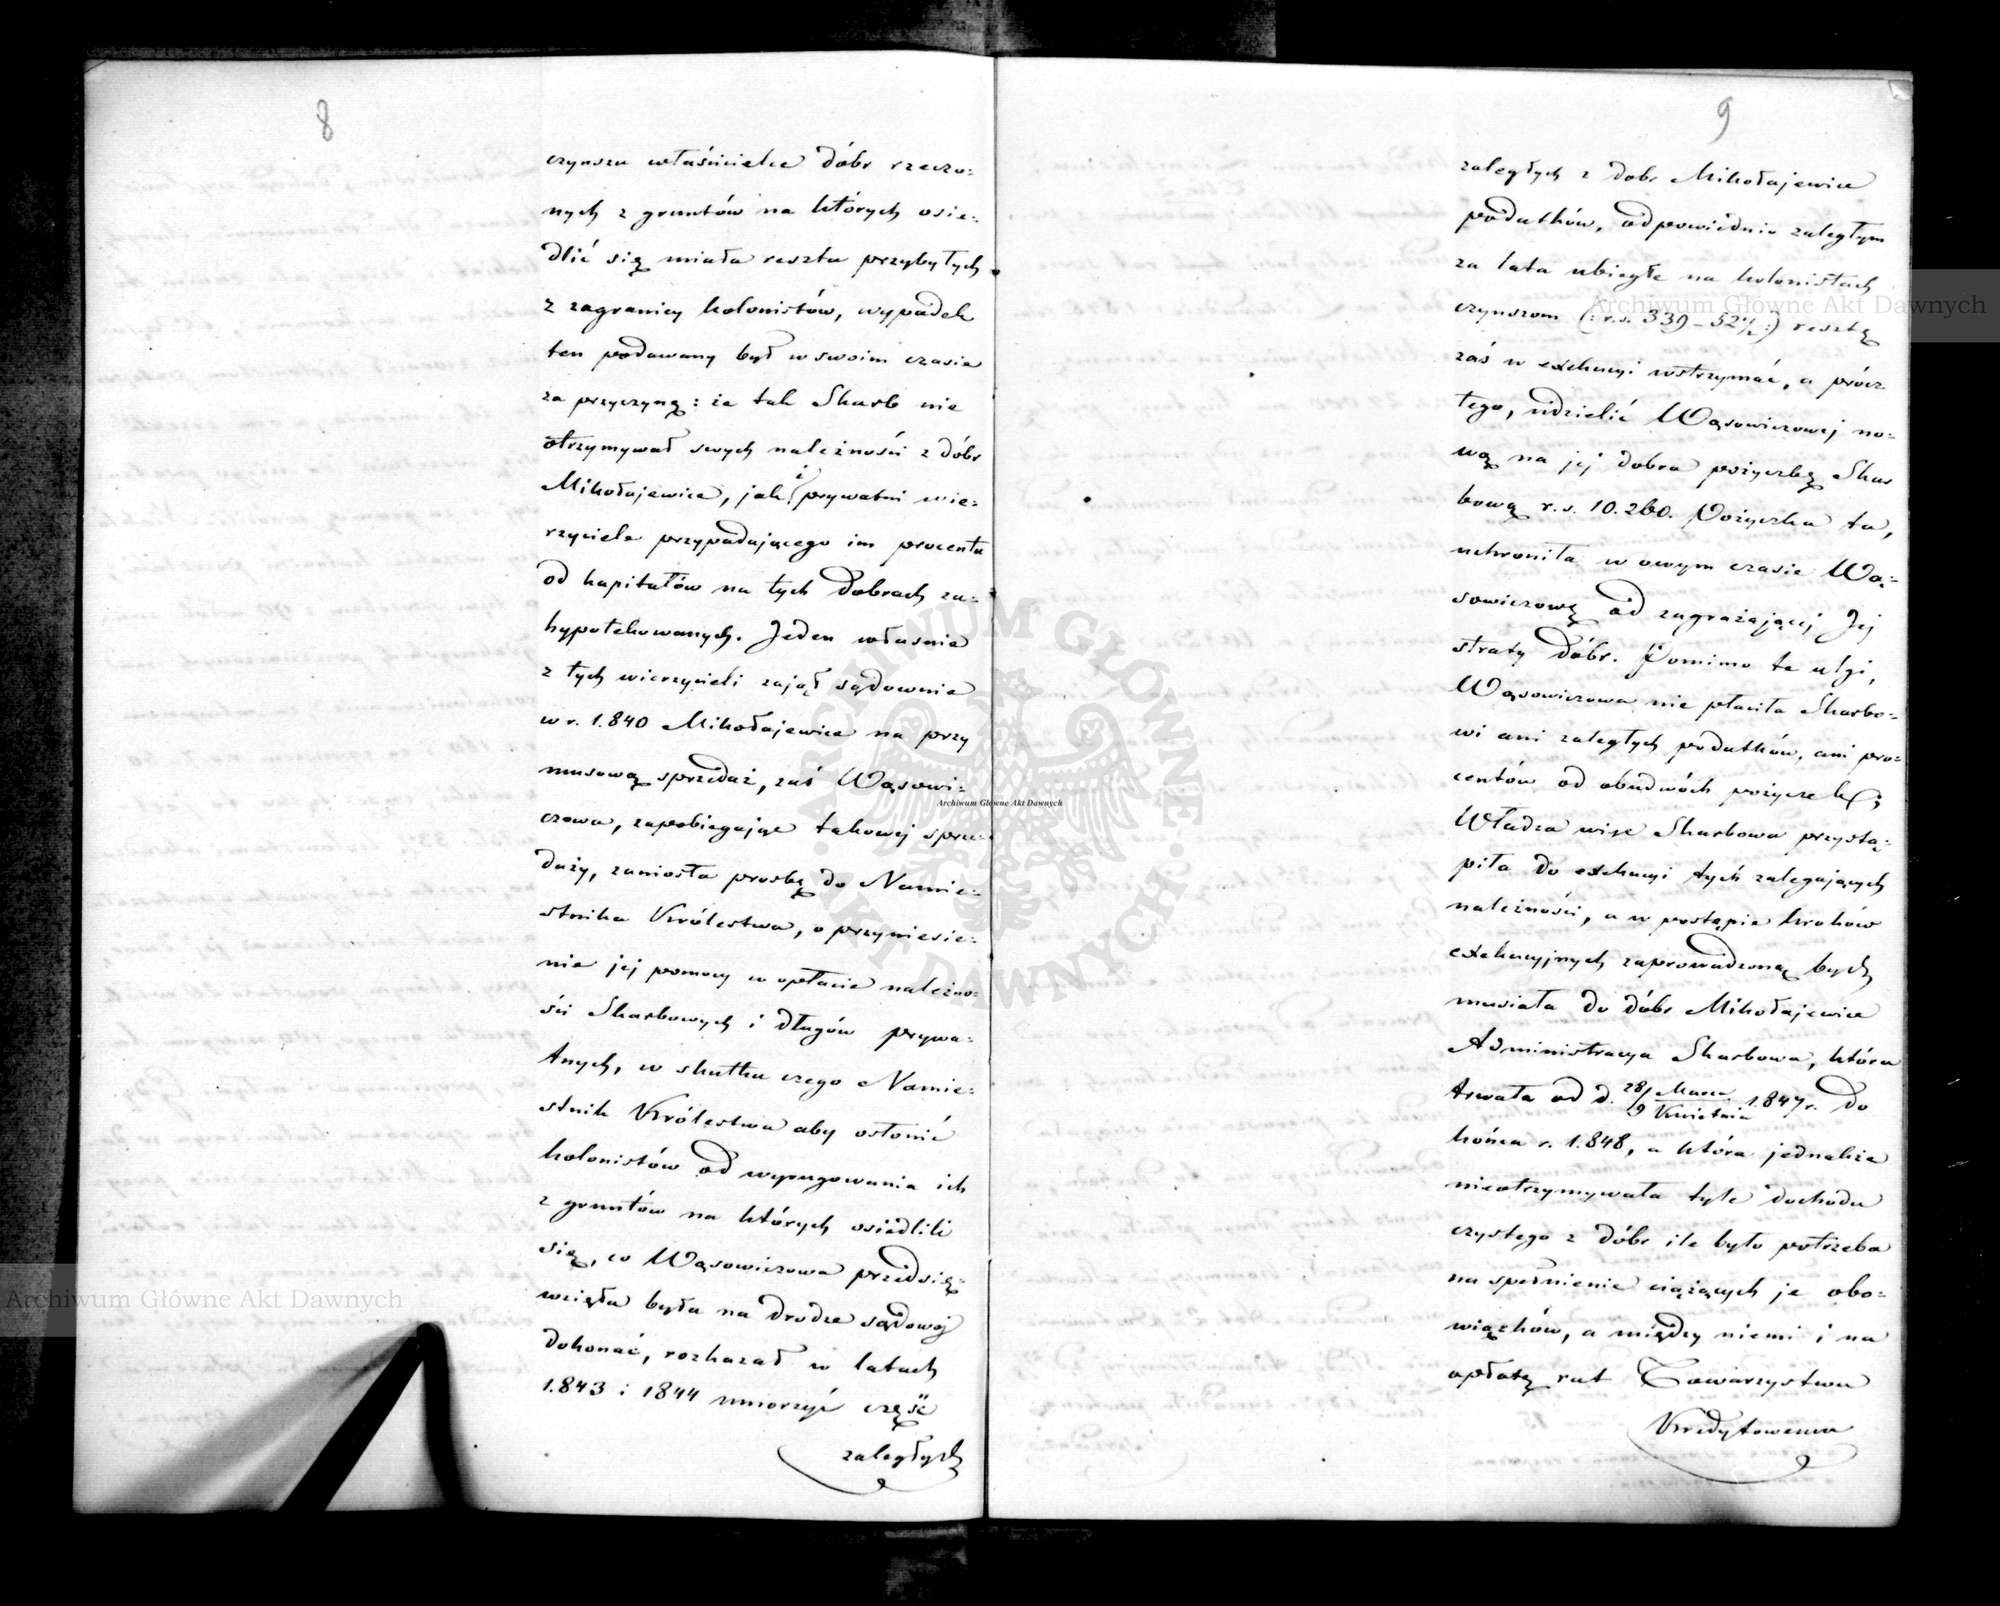 8
czynszu właścicielce dóbr rzeczo=
nych z gruntów na których osie=
dlić się miała reszta przybyłych
z zagranicy kolonistów, wypadek
ten podawany był w swoim czasie
za przyczynę: że tak Skarb nie
otrzymywał swych należności z dóbr
Mikołajewice, jak i prywatni wie=
rzyciele przypadającego im procentu
od kapitałów na tych dobrach za=
hypotekowanych. Jeden własnie
z tych wierzycieli zajął sądownie
w r. 1.840 Mikołajewice na przy
musową sprzedaż, zaś Wąsowi=
czowa, zapobiegając takowej sprze=
daży, zaniosła prosbę do Namie=
stnika Królestwa, o przyniesie=
nie jej pomocy w opłacie należno=
ści Skarbowych i długów prywa=
tnych, w skutku czego Namie=
stnik Królestwa aby osłonić
kolonistów od wyrugowania ich
z gruntów na których osiedlili
się, co Wąsowiczowa przedsię=
wzięła była na drodze sądowej
dokonać, rozkazał w latach
1.843 i 1844 umorzyć część
zaległych
9
zaległych z dobr Mikołajewice
podatków, odpowiednio zaległym
za lata ubiegłe na kolonistach
czynszom (: r.s. 339 - 52½ :) resztę
zaś w exekucyi wstrzymać, a prócz
tego, udzielić Wąsowiczowej no=
wą na jej dobra pożyczkę Skar
bową r.s. 10.260. Pożyczka ta,
uchroniła w owym czasie Wą=
sowiczową od zagrażającej Jej
straty dóbr. Pomimo te ulgi,
Wąsowiczowa nie płaciła Skarbo=
wi ani zaległych podatków, ani pro=
centów od obudwóch pożyczek;
Władza więc Skarbowa przystą=
piła do exekucyi tych zalegających
należności, a w postąpie kroków
exekucyjnych zaprowadzoną bydź
musiała do dóbr Mikołajewice
Administracya Skarbowa, która
trwała od d. 28/9 Marca/Kwietnia 1.847 r. do
końca r. 1.848, a która jednakże
nieotrzymywała tyle dochodu
czystego z dóbr ile było potrzeba
na spełnienie ciążących je obo=
wiązków, a między niemi i na
opłatę rat Towarzystwu
Kredytowemu
Archiwum Główne Akt Dawnych
Archiwum Główne Akt Dawnych
ARCHIWUM GŁÓWNE AKT DAWNYCH
Archiwum Główne Akt Dawnych